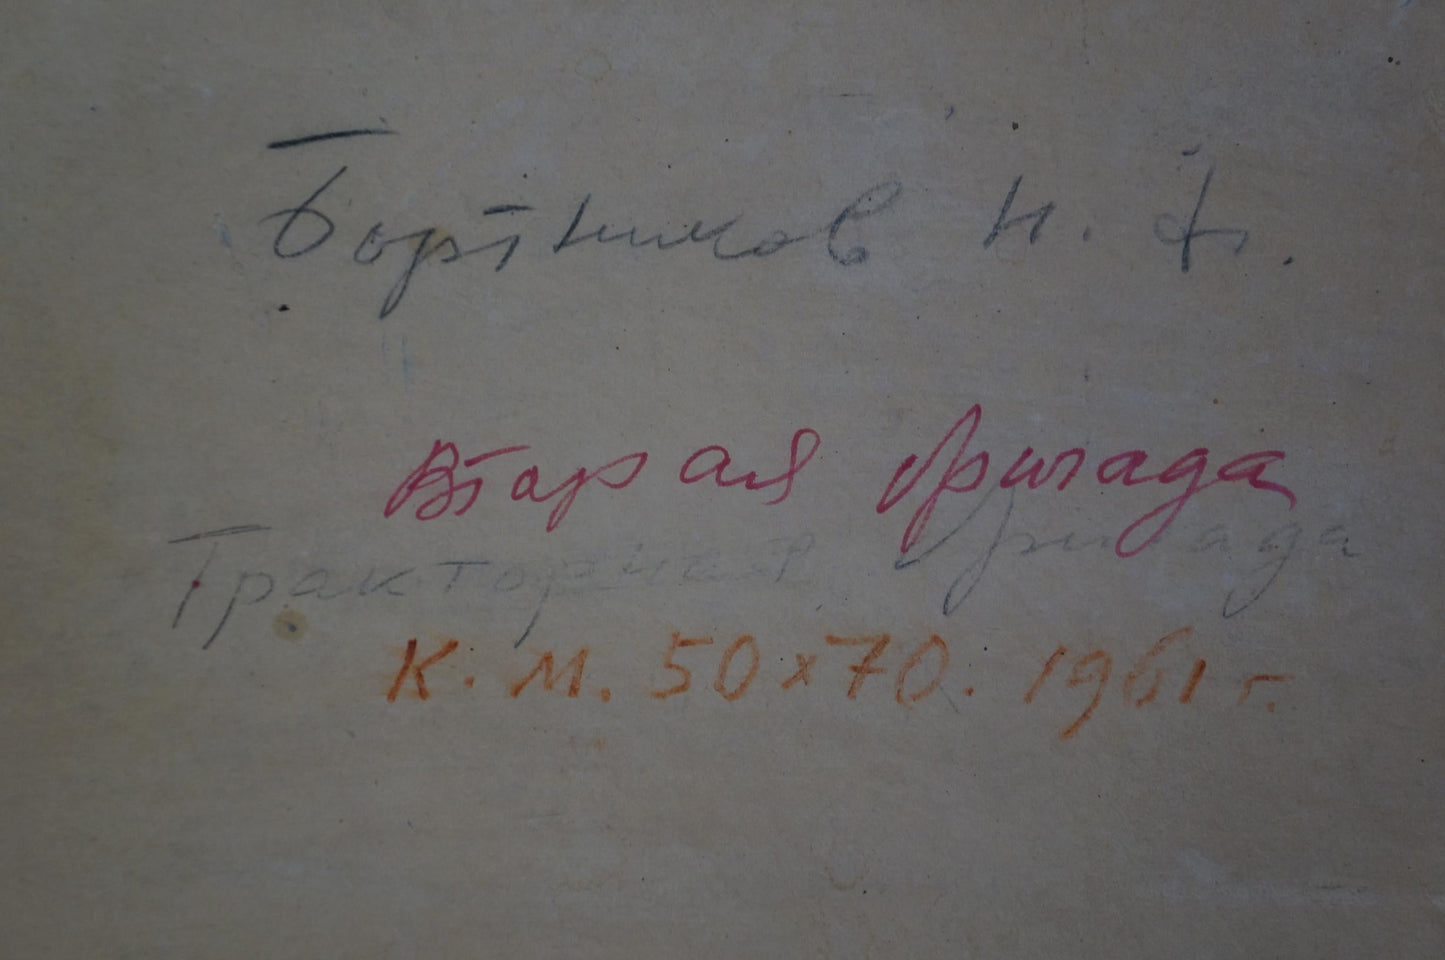 Бортников Н. Ф.
Вторая бригада
Тракторная бригада
К. М. 50х70. 1961 г.